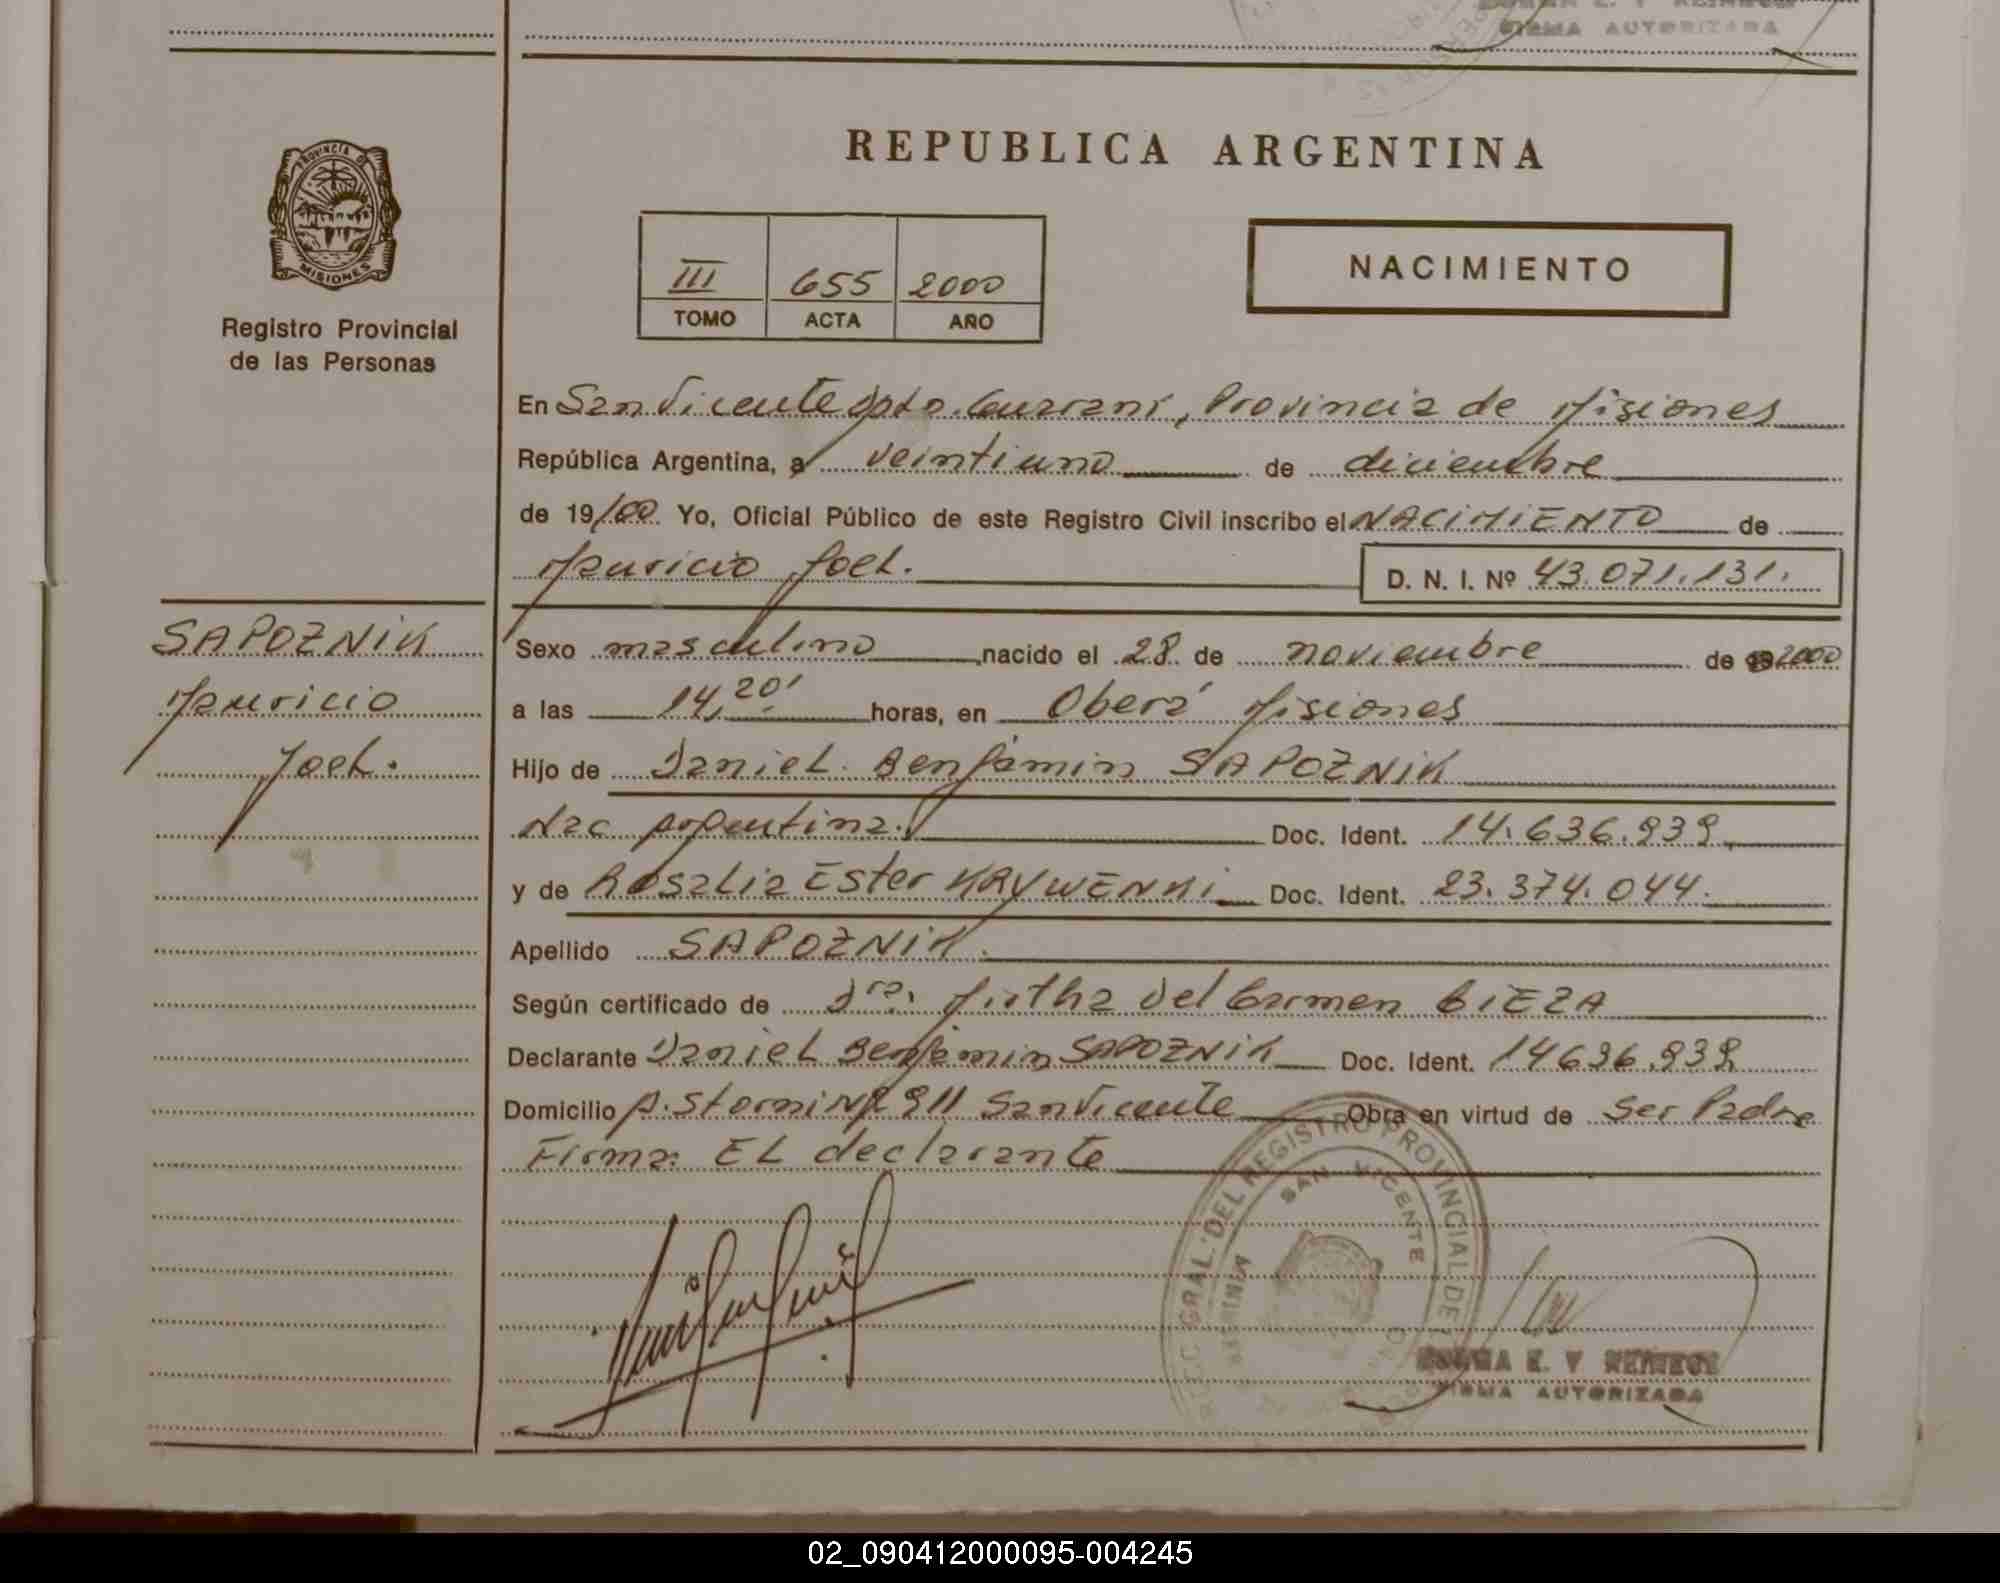 FIRMA AUTORIZADA
PROVINCIA DE
MISIONES
Registro Provincial
de las Personas
REPUBLICA ARGENTINA
III 655 2000
TOMO ACTA AÑO
NACIMIENTO
En San Vicente Dpto. Guarani, Provincia de Misiones
República Argentina, a veintiuno de diciembre
de 19/00. Yo, Oficial Público de este Registro Civil inscribo el NACIMIENTO de
Mauricio Joel. D. N. I. Nº 43.071.131.
SAPOZNIK
Mauricio
Joel.
Sexo masculino nacido el 28 de noviembre de 2000
a las 14,20' horas, en Oberá Misiones
Hijo de Daniel Benjamin SAPOZNIK
Nac argentina. Doc. Ident. 14.636.939
y de Rosalia Ester KRYWENKI Doc. Ident. 23.374.044.
Apellido SAPOZNIK.
Según certificado de Dra. Mirtha Del Carmen CIEZA
Declarante Daniel Benjamin SAPOZNIK Doc. Ident. 14636.939
Domicilio A. Storni Nº 911 San Vicente Obra en virtud de Ser Padre
Firma: EL declarante
GRAL. DEL REGISTRO PROVINCIAL DE
SAN VICENTE
E. V
FIRMA AUTORIZADA
02_090412000095-004245